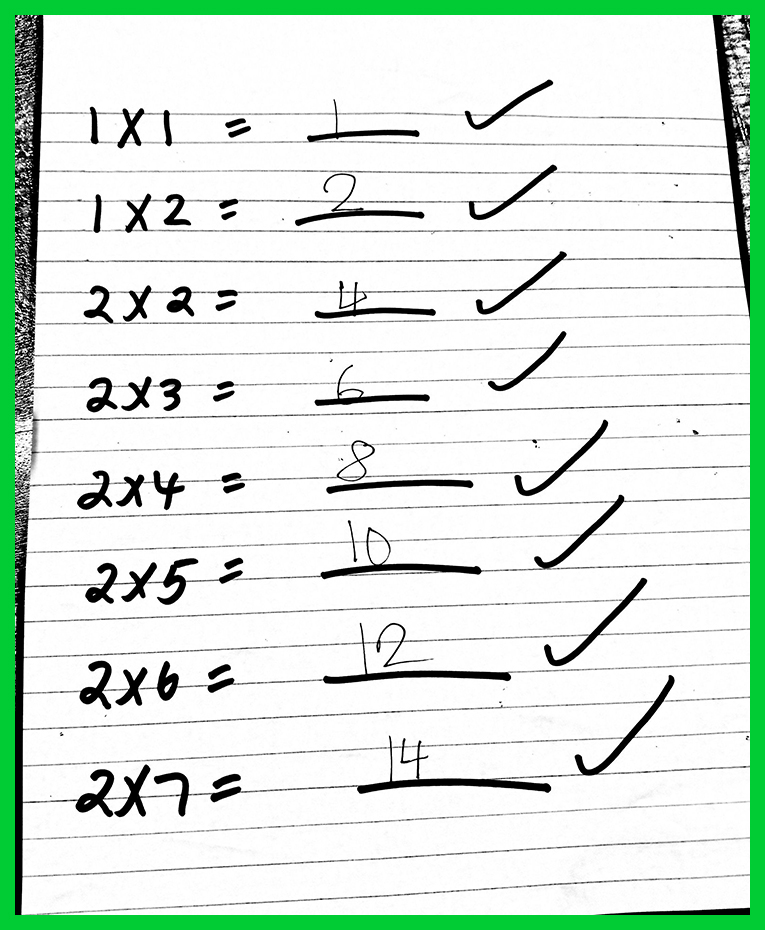 1 X 1 = 1 ✓
1 X 2 = 2 ✓
2 X 2 = 4 ✓
2 X 3 = 6 ✓
2 X 4 = 8 ✓
2 X 5 = 10 ✓
2 X 6 = 12 ✓
2 X 7 = 14 ✓